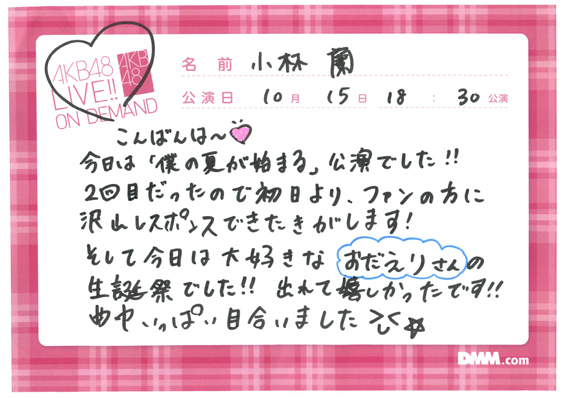 AKB48
LIVE!!
ON DEMAND
AKB
48
名前 小林 蘭
公演日 10月 15日 18 : 30 公演
こんばんは〜
今日は「僕の夏が始まる」公演でした!!
2回目だったので初日より、ファンの方に
沢山レスポンスできたきがします!
そして今日は大好きな おだえりさんの
生誕祭でした!! 出れて嬉しかったです!!
曲中いっぱい目合いました
DMM.com